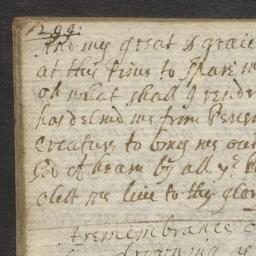 299:
And my great & graie
at this time to spare m
oh what shall I render
has delivrd me from
Creature to bring me out
God of heavn by all ye
o lett me live to thy glor
A remembrance o
drowning